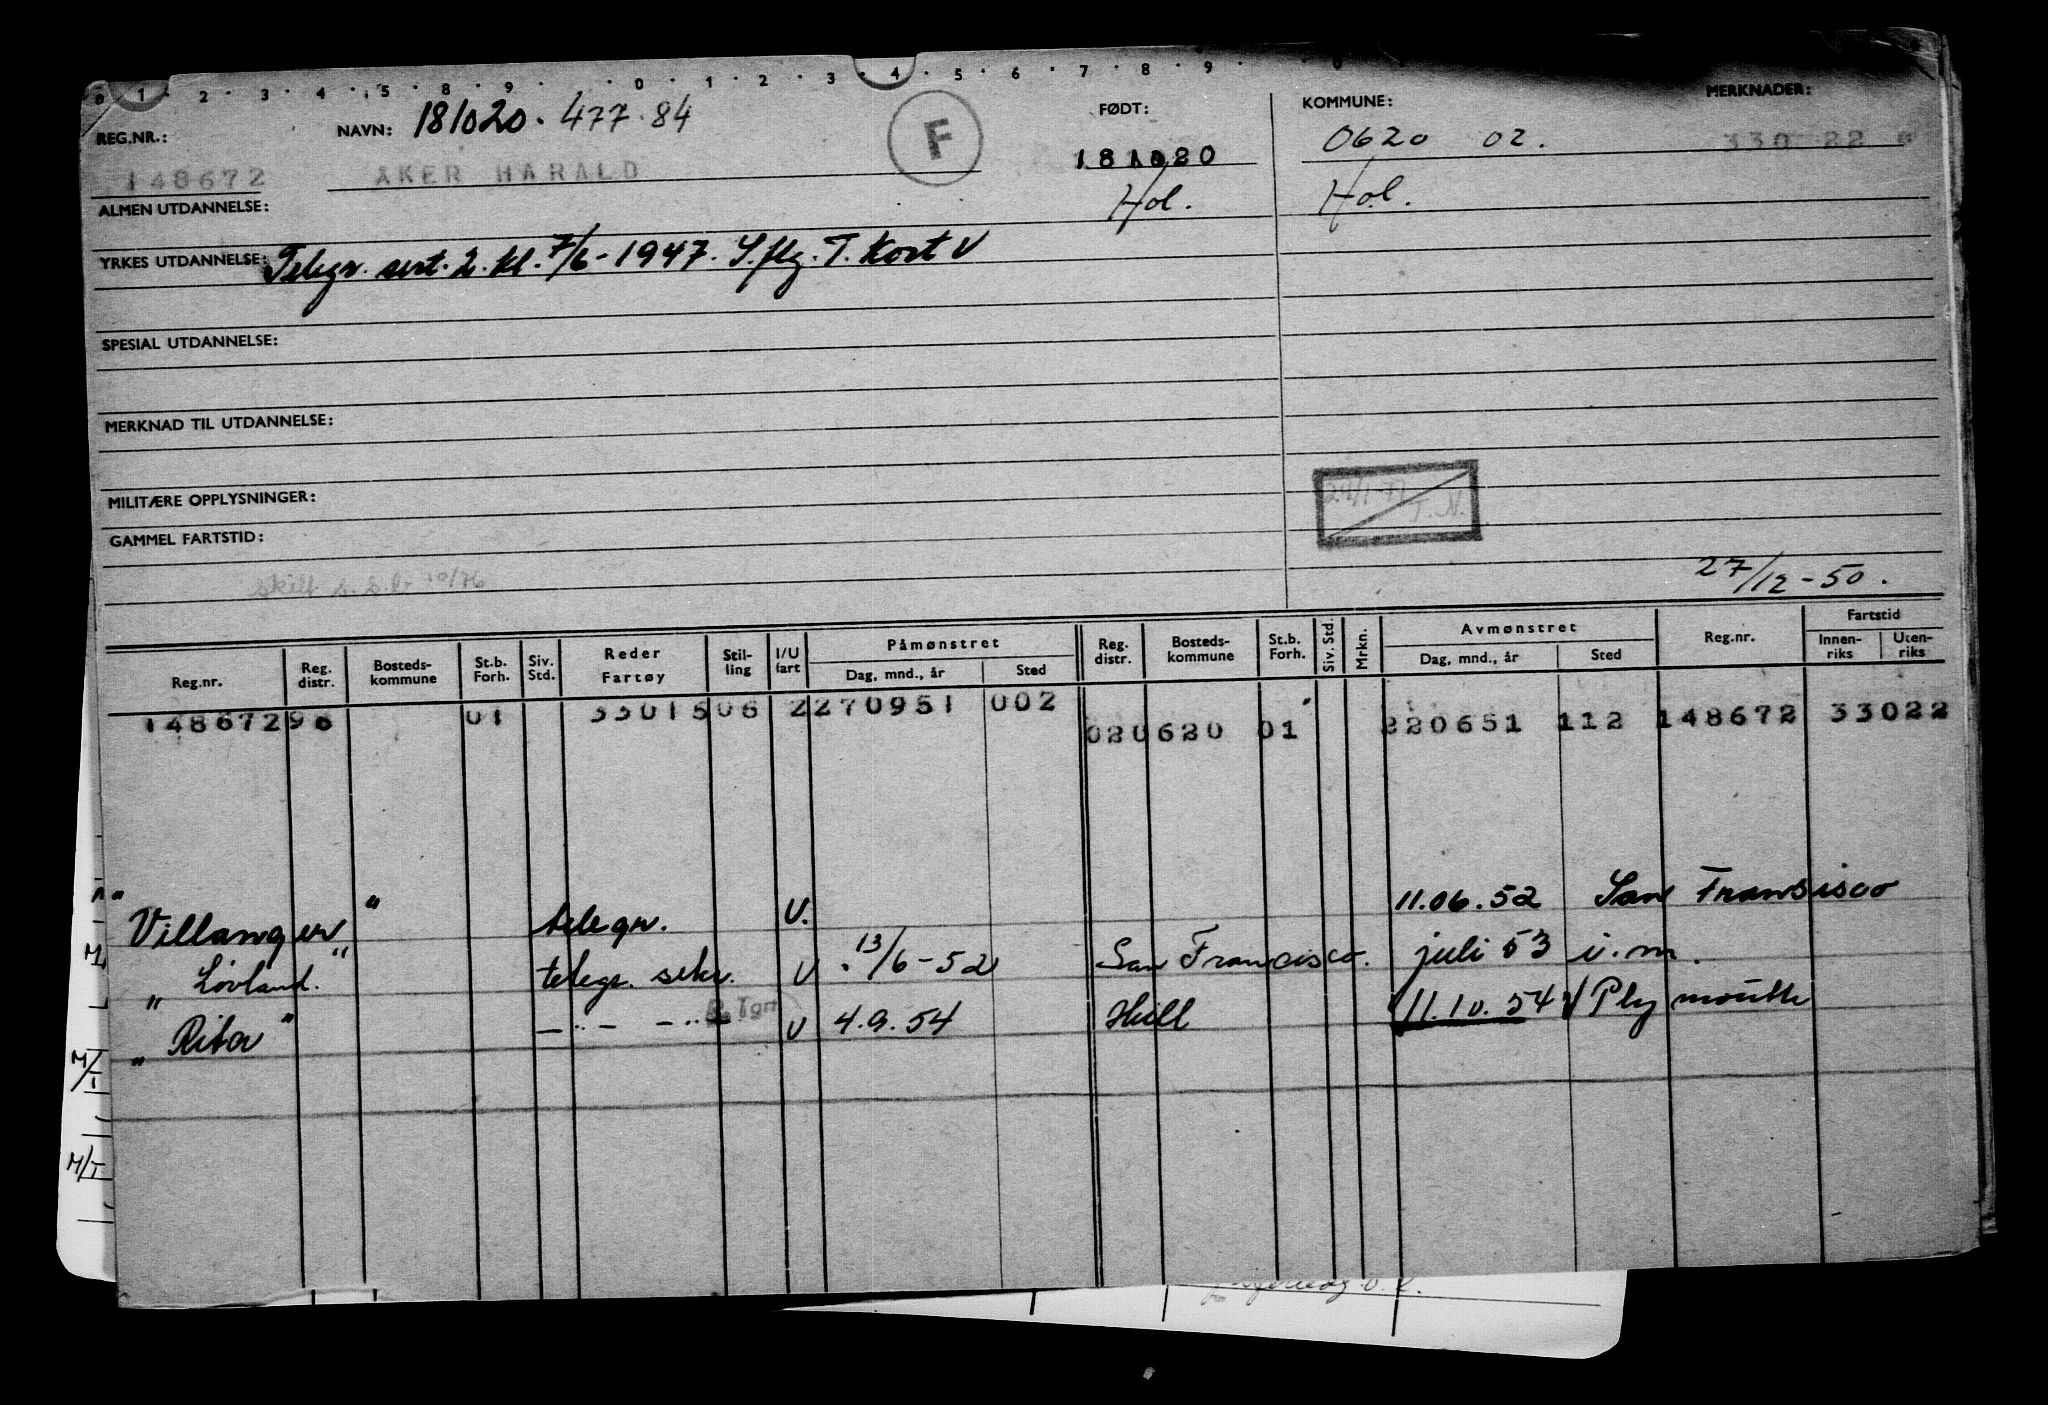 0 1 2 3 4 5 8 9 0 1 2 3 4 5 6 7 8 9 0
REG.NR.: NAVN: 181020. 477.84 F FØDT: KOMMUNE: MERKNADER:
148672 AKER HARALD 181020 0620 02. 330 22
ALMEN UTDANNELSE: Hol. Hol.
YRKES UTDANNELSE: Telegr. sert. 2. kl. 7/6-1947. S.flg. T. Kort V
SPESIAL UTDANNELSE:
MERKNAD TIL UTDANNELSE:
MILITÆRE OPPLYSNINGER: 24/1-77 T.N.
GAMMEL FARTSTID:
10/76 27/12-50.
Reg.nr. Reg. distr. Bosteds-kommune St.b. Forh. Siv. Std. Reder Fartøy Stil-ling I/U fart Påmønstret Dag, mnd., år Sted Reg. distr. Bosteds-kommune St.b. Forh. Siv. Std. Mrkn. Avmønstret Dag, mnd., år Sted Reg.nr. Fartstid Innen-riks Uten-riks
148672 96 01 33015 06 2 270951 002 020620 01 220651 112 148672 33022
" Villanger " telegr. U. 11.06.52 San Fransisco
" Lovland. " telegr. sekr. U 13/6-52 San Francisco. juli 53 i.m.
" Rita " -"- -"- U 4.9.54 Hull 11.10.54 Plymouth
M/T
M/T